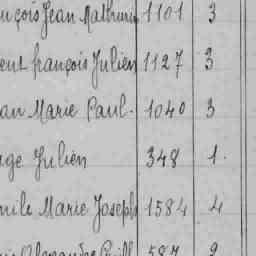 nçois Jean Mathurin 1101 3
ent françois Julien 1127 3
an Marie Paul. 1040 3
ge Julien 348 1.
mile Marie Joseph 1584 4
Alexandre 587